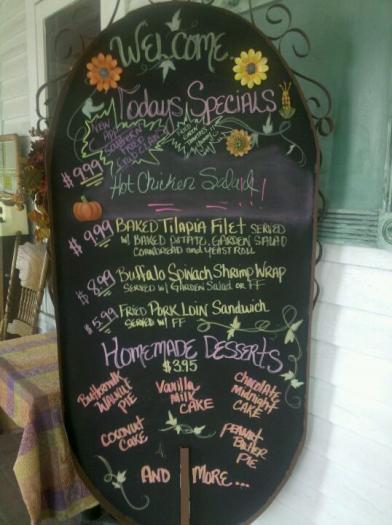 WELCOME
Todays Specials
NEW
$9.99 Hot Chicken Salad!!!
$9.99 BAKED Tilapia Filet SERVED
W/ BAKED POTATO, GARDEN SALAD
CORNBREAD and YEAST ROLL
$8.99 Buffalo Spinach Shrimp WRAP
SERVED W/ GARDEN Salad OR FF
$5.99 FRIED PORK LOIN SANDWICH
SERVED W/ FF
HOMEMADE DESSERTS
$3.95
Buttermilk
WALNUT
PIE
Vanilla
MILK
CAKE
CHOCOLATE
MIDNIGHT
CAKE
COCONUT
CAKE
PEANUT
BUTTER
PIE
AND MORE...